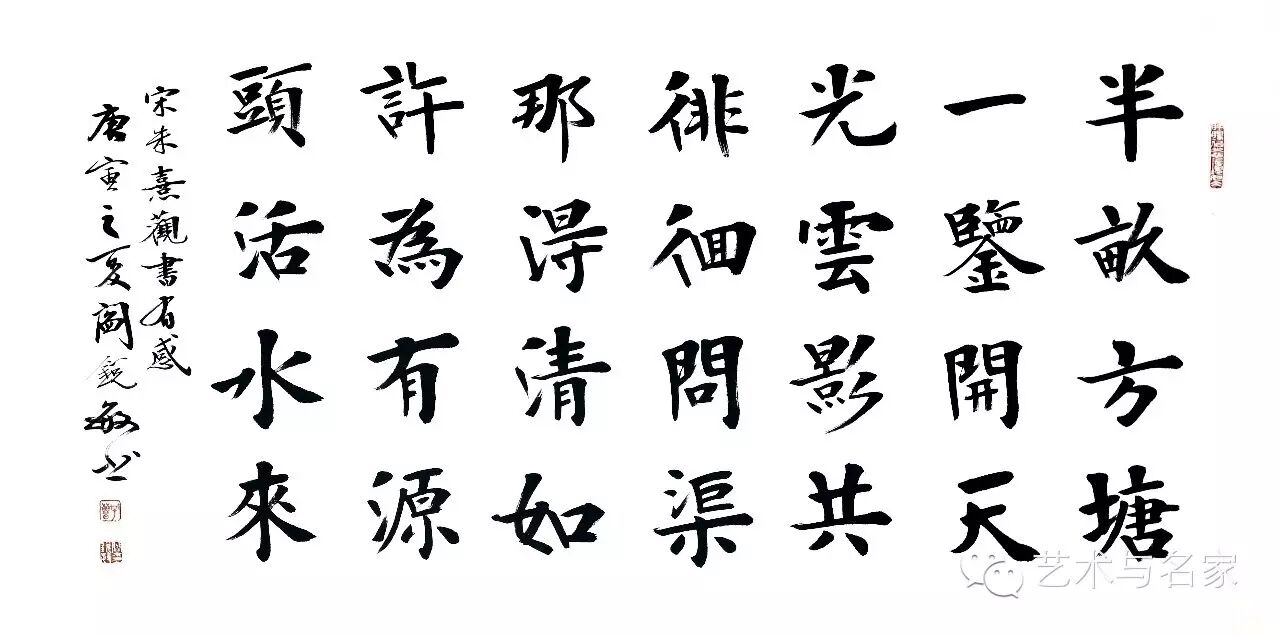 半畝方塘
一鑒開天
光雲影共
徘徊問渠
那得清如
許為有源
頭活水來
宋朱熹觀書有感
庚寅之夏閻銳敏书
艺术与名家